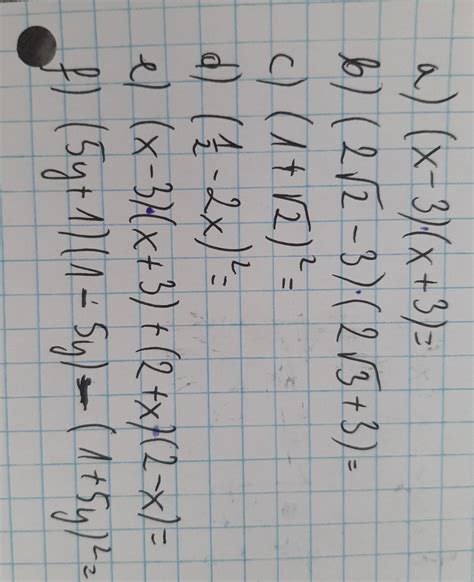 a) (x-3)·(x+3)=
b) (2√2-3)·(2√3+3)=
c) (1+√2)²=
d) (½-2x)²=
e) (x-3)·(x+3)+(2+x)·(2-x)=
f) (5y+1)(1-5y)-(1+5y)²=